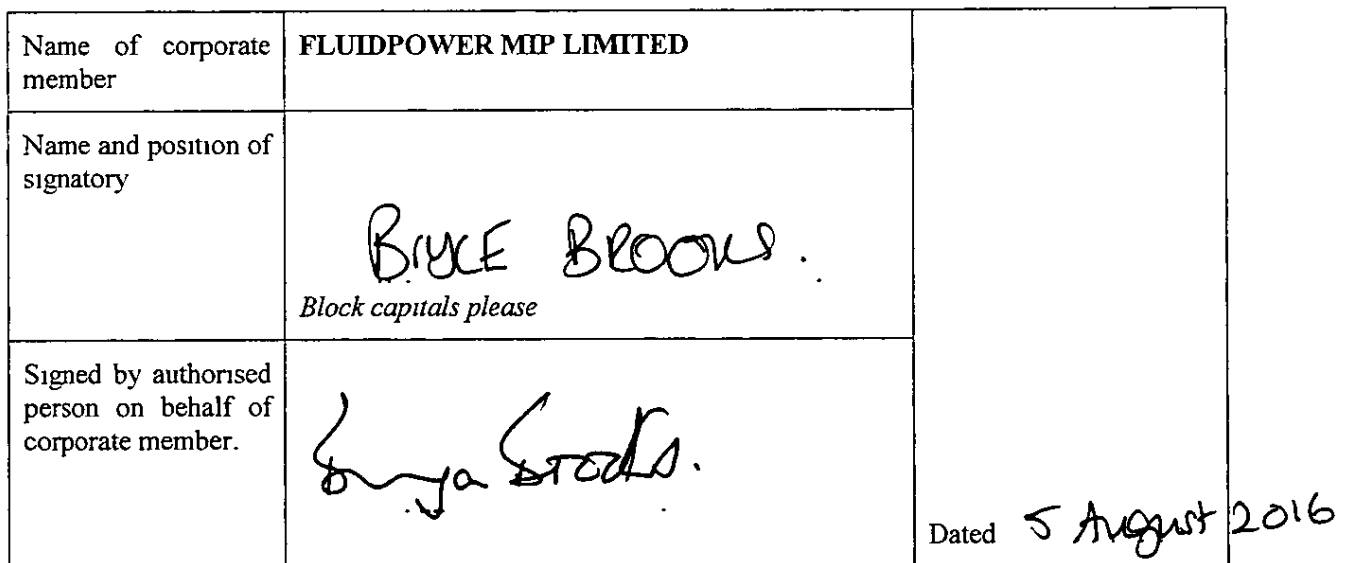 Name of corporate member
FLUIDPOWER MIP LIMITED
Name and position of signatory
BRYCE BROOKS.
Block capitals please
Signed by authorised person on behalf of corporate member.
Brooks.
Dated 5 August 2016